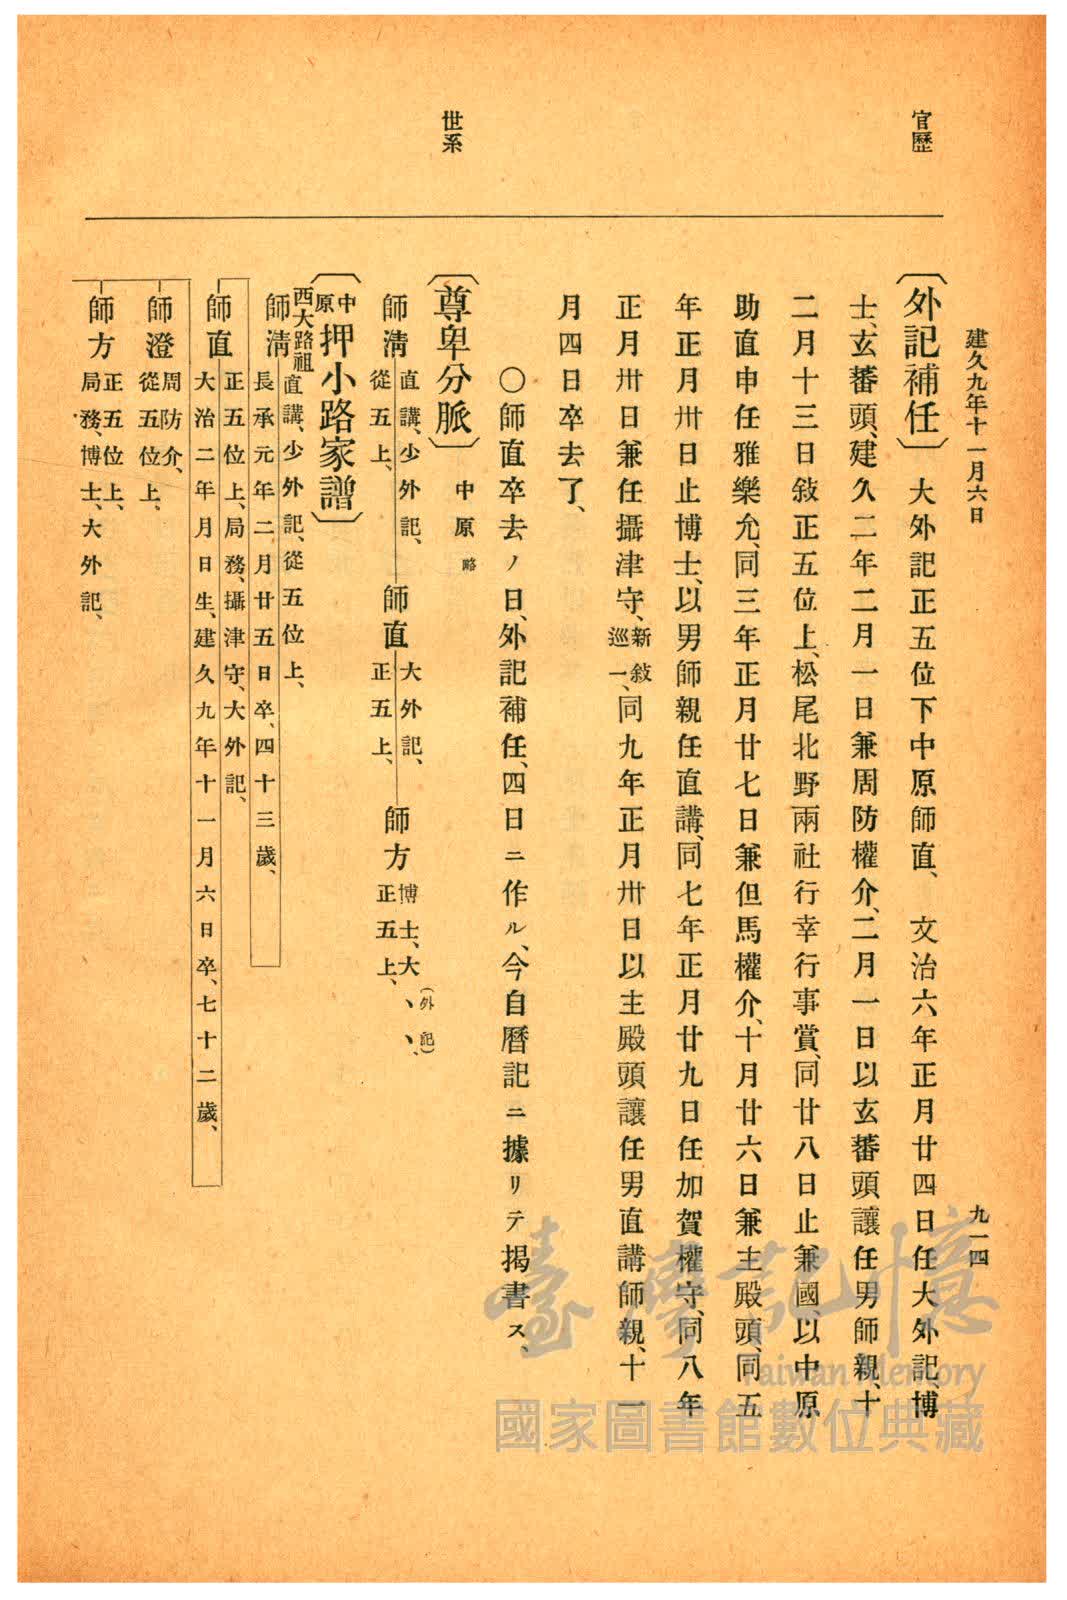 建久九年十一月六日
九一四
官歷
〔外記補任〕大外記正五位下中原師直、文治六年正月廿四日任大外記、博
士、玄蕃頭、建久二年二月一日兼周防權介、二月一日以玄蕃頭讓任男師親、十
二月十三日敍正五位上、松尾北野兩社行幸行事賞、同廿八日止兼國、以中原
助直申任雅樂允、同三年正月廿七日兼但馬權介、十月廿六日兼主殿頭、同五
年正月卅日止博士、以男師親任直講、同七年正月廿九日任加賀權守、同八年
正月卅日兼任攝津守、新敍巡一、同九年正月卅日以主殿頭讓任男直講師親、十一
月四日卒去了、
〇師直卒去ノ日、外記補任、四日ニ作ル、今自曆記ニ據リテ揭書ス、
世系
〔尊卑分脈〕中原略
師淸 直講、少外記、從五上、 師直 大外記、正五上、 師方 博士、大、、、(外記)正五上、
〔中原押小路家譜〕
西大路祖
師淸 直講、少外記、從五位上、
長承元年二月廿五日卒、四十三歲、
師直 正五位上、局務、攝津守、大外記、
大治二年月日生、建久九年十一月六日卒、七十二歲、
師澄 周防介、
從五位上、
師方 正五位上、
局務、博士、大外記、
臺灣記憶
Taiwan Memory
國家圖書館數位典藏